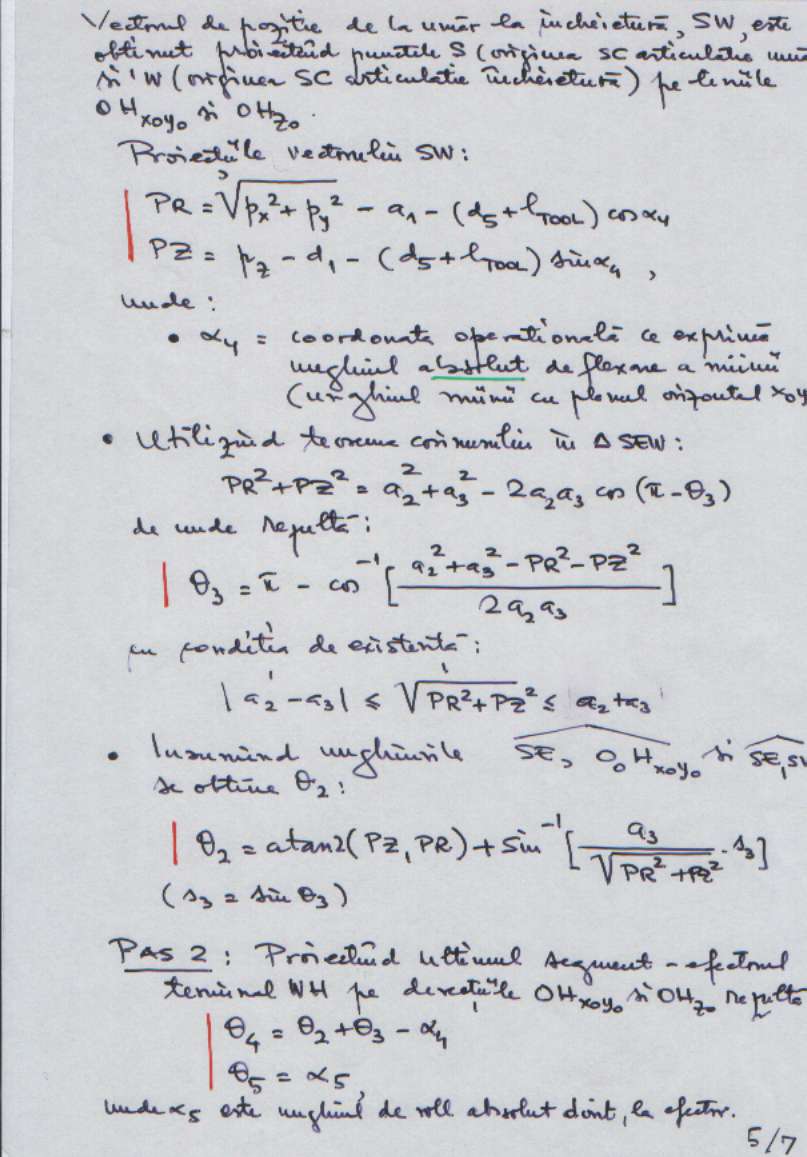 Vectorul de poziție de la umăr la încheietură, SW, este
obținut proiectînd punctele S (originea SC articulație umă
și W (originea SC articulație încheietură) pe liniile
OH_x0y0 și OH_z0.
Proiecțiile vectorului SW:
PR = √(p_x² + p_y²) - a₁ - (d₅ + l_TOOL) cos α₄
PZ = p_z - d₁ - (d₅ + l_TOOL) sin α₄ ,
unde :
• α₄ = coordonata operațională ce exprimă
unghiul absolut de flexare a mîinii
(unghiul mîinii cu planul orizontal x₀y
• Utilizînd teorema cosinusului în Δ SEW:
PR² + PZ² = a₂² + a₃² - 2a₂a₃ cos (π - θ₃)
de unde rezultă:
θ₃ = π - cos⁻¹ [ (a₂² + a₃² - PR² - PZ²) / (2a₂a₃) ]
cu condiția de existență:
| a₂ - a₃ | ≤ √(PR² + PZ²) ≤ a₂ + a₃
• Însumînd unghiurile SE, O₀H_x0y0 și SE, SW
se obține θ₂ :
θ₂ = atan2( PZ, PR) + sin⁻¹ [ a₃ / √(PR² + PZ²) · s₃ ]
(s₃ = sin θ₃)
PAS 2 : Proiectînd ultimul segment - efectorul
terminal WH pe direcțiile OH_x0y0 și OH_z0 rezultă
θ₄ = θ₂ + θ₃ - α₄
θ₅ = α₅,
unde α₅ este unghiul de roll absolut dorit, la efector.
5/7